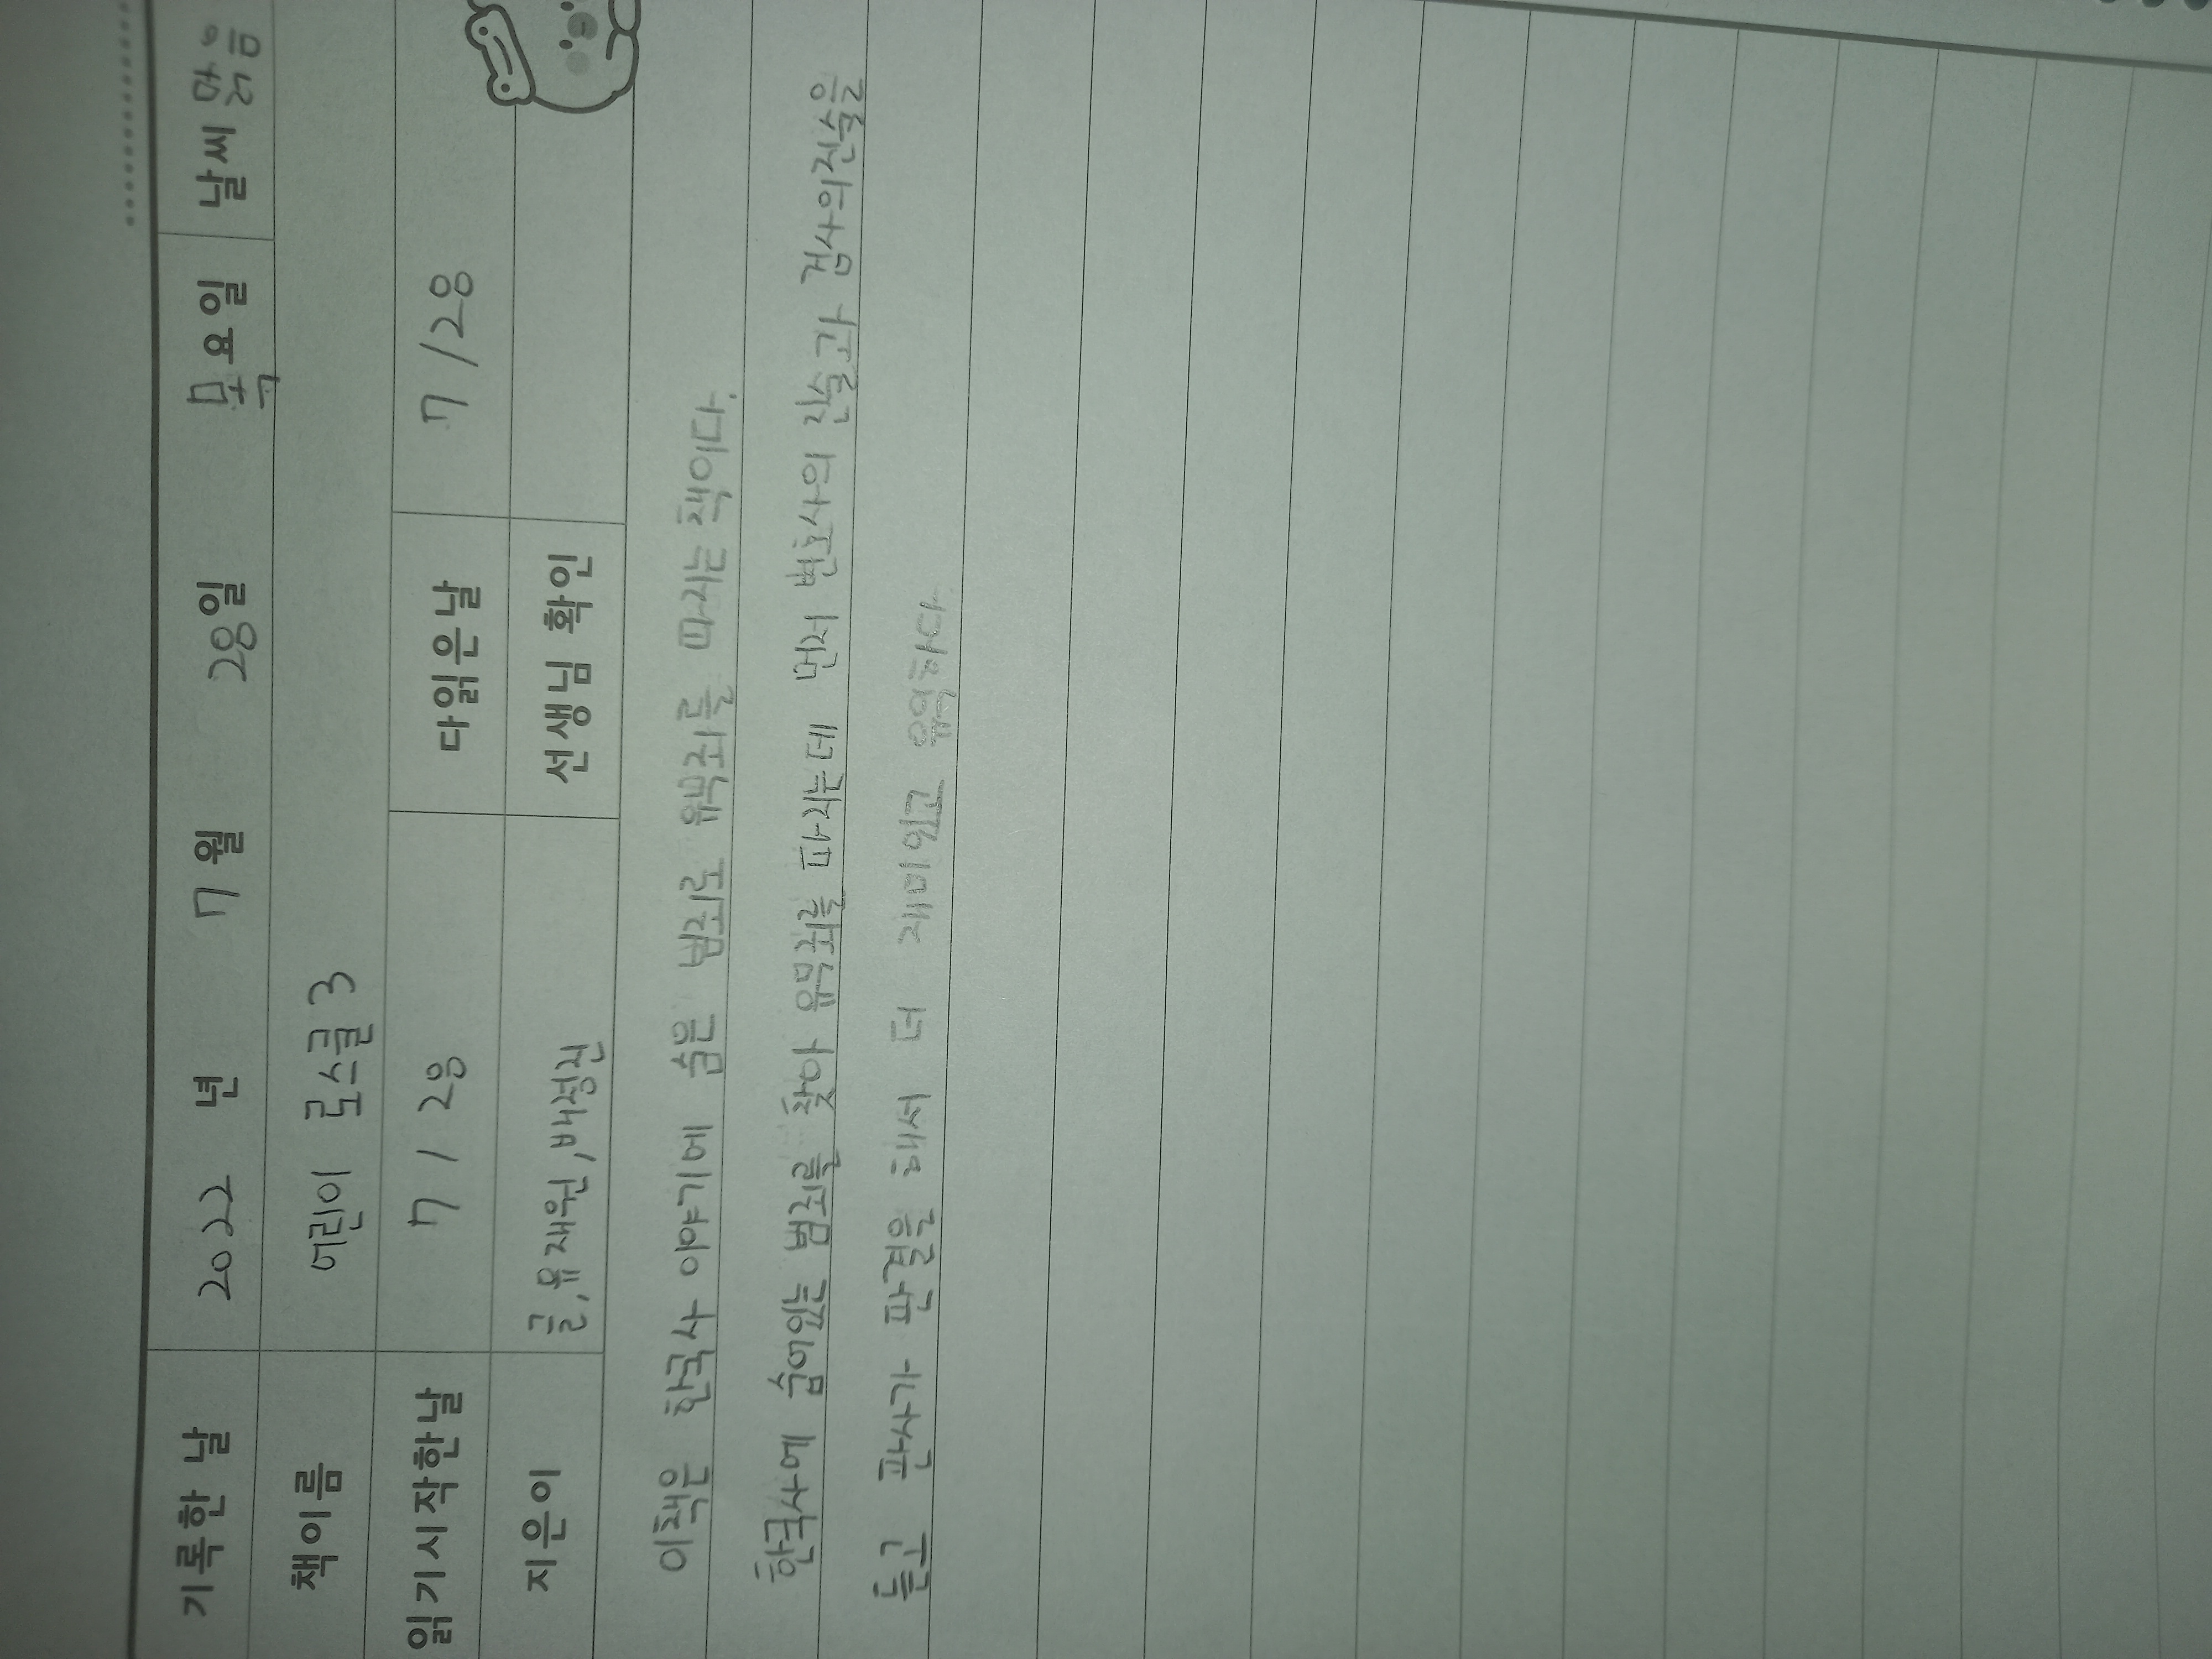 기록한 날 2022 년 7 월 28 일 목요일 날씨 맑음
책이름 어린이 로스쿨 3
읽기시작한날 7 / 28 다읽은날 7 /28
지은이 글,유재원,배정진 선생님 확인
이책은 한국사 이야기에 숨은 범죄로 유무죄를 따지는 책이다.
한국사에 숨어있는 범죄를 찾아 유무죄를 따지는데 먼저 변호사의 진술과 검사의진술을
듣고 판사가 판결을 해서 더 재미있고 유익하다